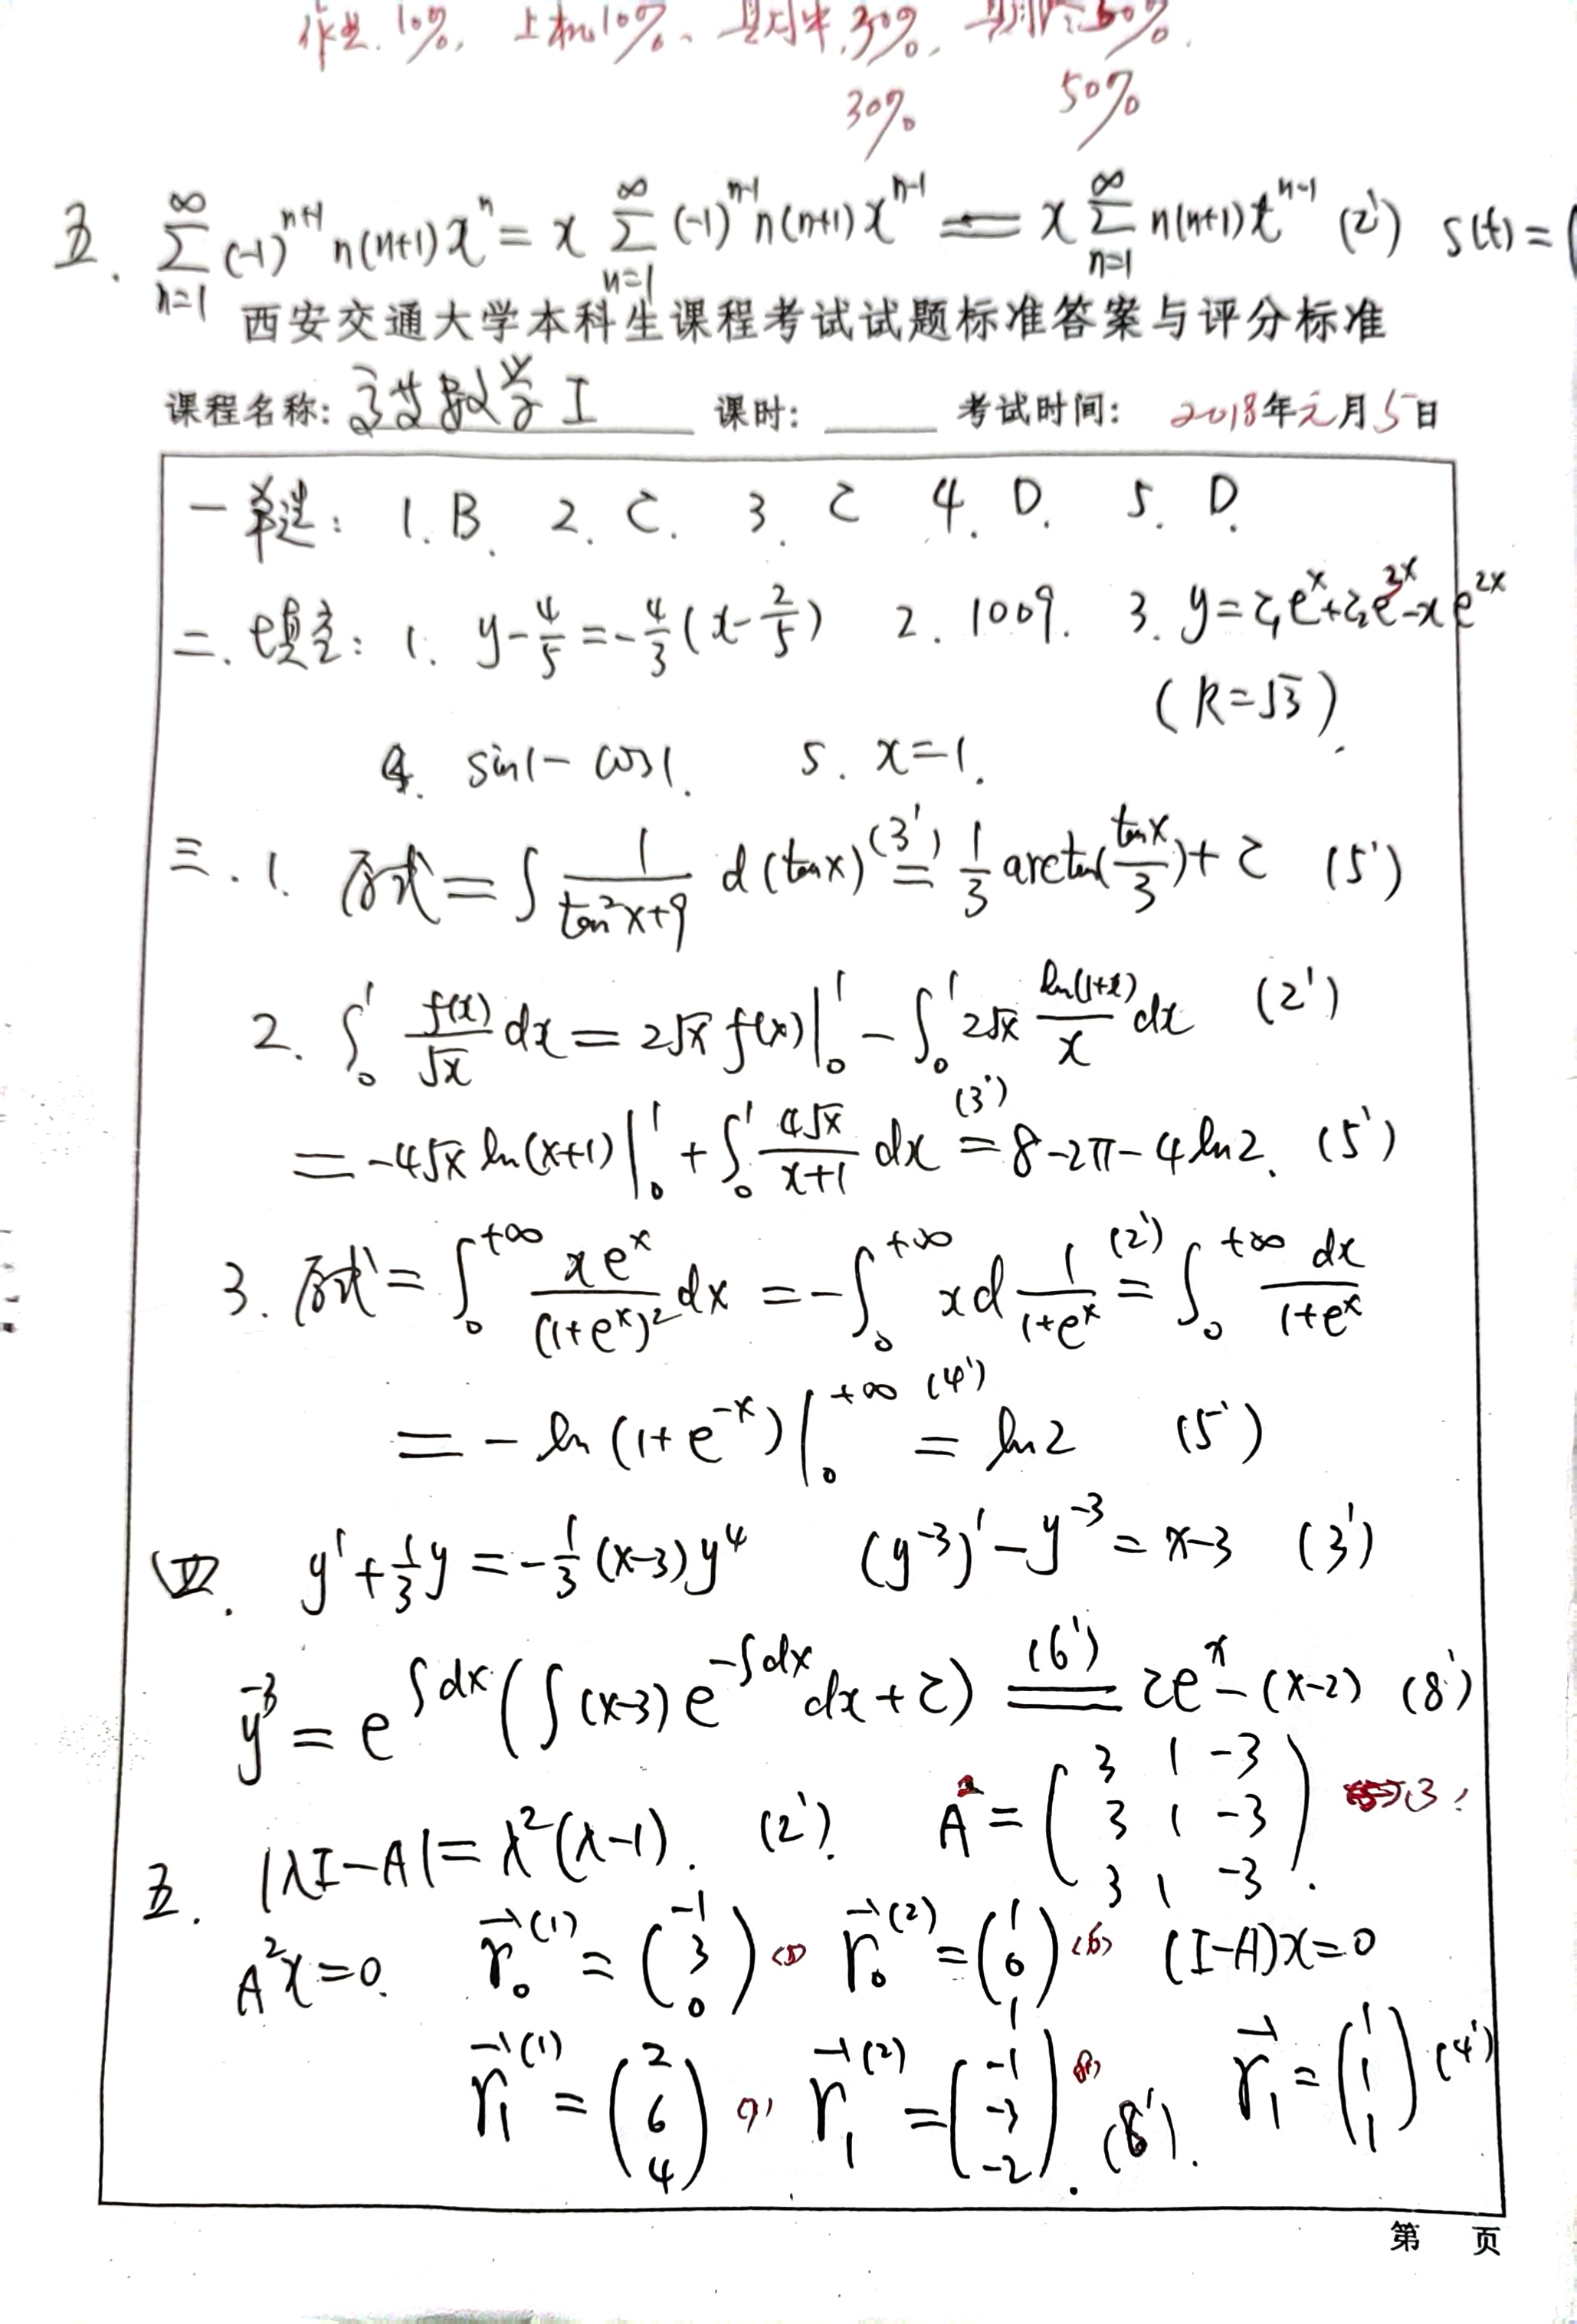 作业.10%, 上机10%、期中.30%,
30% 50%
五. \sum_{n=1}^{∞} (-1)^{n+1} n(n+1) x^n = x \sum_{n=1}^{∞} (-1)^{n-1} n(n+1) x^{n-1} = x \sum_{n=1}^{∞} n(n+1) t^{n-1} (2') S(t)=(
西安交通大学本科生课程考试试题标准答案与评分标准
课程名称: 高等数学 I 课时: 考试时间: 2018年元月5日
一 单选: 1. B. 2. C. 3. C 4. D. 5. D.
二. 填空: 1. y-\frac{4}{5}=-\frac{4}{3}(x-\frac{2}{5}) 2. 1009. 3. y=c_1e^x+c_2e^{3x}-xe^{2x}
(R=\sqrt{3}).
4. sin1-cos1. 5. x=1.
三.1. 原式=∫\frac{1}{tan^2x+9} d(tanx) \overset{(3')}{=} \frac{1}{3} arctan(\frac{tanx}{3})+c (5')
2. ∫_0^1 \frac{f(x)}{\sqrt{x}} dx = 2\sqrt{x} f(x)|_0^1 - ∫_0^1 2\sqrt{x} \frac{ln(1+x)}{x} dx (2')
= -4\sqrt{x} ln(x+1)|_0^1 + ∫_0^1 \frac{4\sqrt{x}}{x+1} dx \overset{(3')}{=} 8-2π-4ln2. (5')
3. 原式=∫_0^{+∞} \frac{xe^x}{(1+e^x)^2} dx = -∫_0^{+∞} x d\frac{1}{1+e^x} \overset{(2')}{=} ∫_0^{+∞} \frac{dx}{1+e^x}
= -ln(1+e^{-x})|_0^{+∞} \overset{(4')}{=} ln2 (5')
四. y'+\frac{1}{3}y=-\frac{1}{3}(x-3)y^4 (y^{-3})'-y^{-3}=x-3 (3')
y^{-3}=e^{∫dx}(∫(x-3)e^{-∫dx}dx+c) \overset{(6')}{=} ce^x-(x-2) (8')
五. |λI-A|=λ^2(λ-1). (2'). A^2=\begin{pmatrix} 3 & 1 & -3 \\ 3 & 1 & -3 \\ 3 & 1 & -3 \end{pmatrix}. 3'
A^2x=0. \vec{r}_0^{(1)}=\begin{pmatrix} -1 \\ 3 \\ 0 \end{pmatrix} (5) \vec{r}_0^{(2)}=\begin{pmatrix} 1 \\ 0 \\ 1 \end{pmatrix} (6) (I-A)x=0
\vec{r}_1^{(1)}=\begin{pmatrix} 2 \\ 6 \\ 4 \end{pmatrix} (7) \vec{r}_1^{(2)}=\begin{pmatrix} -1 \\ -3 \\ -2 \end{pmatrix}. (8'). \vec{r}_1=\begin{pmatrix} 1 \\ 1 \\ 1 \end{pmatrix} (4')
第 页